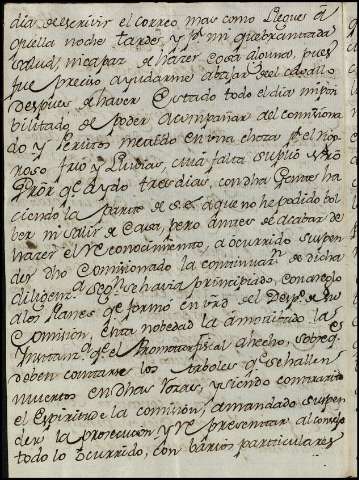 dia de escrivir el correo mas como llegue a
quella noche tarde, y pr. mi quebrantada
salud, incapaz de hazer cosa alguna, pues
fue preciso ayudarme abajar del caballo
despues de haver estado todo el dia impo
bilitado de poder acompañar del comisiona
do y peritos metido en una choza pr. el rigo
roso frio y lluvias, cuia falta suplio
qe. aydo tres dias, con dha Gente ha
ciendo la parte de S.E. a que no he podido bol
ber ni salir de casa, pero antes de acabar de
hazer el reconocimiento, a ocurrido suspen
der dho Comisionado la continuan. de dicha
diligena. segn. se havia principiado, con areglo
a los planes qe. formó en vrd. del Despo. de su
Comision, esta nobedad la á motibado la
instana. qe. el Promotor fiscal a hecho, sobre qe.
deben contarse los arboles qe. se hallen
muertos en dhas rozas, y siendo contrario
el Espiritu de la comision, a mandado suspen
der la prosecucion y representar al consejo
todo lo ocurrido, con barios particulares